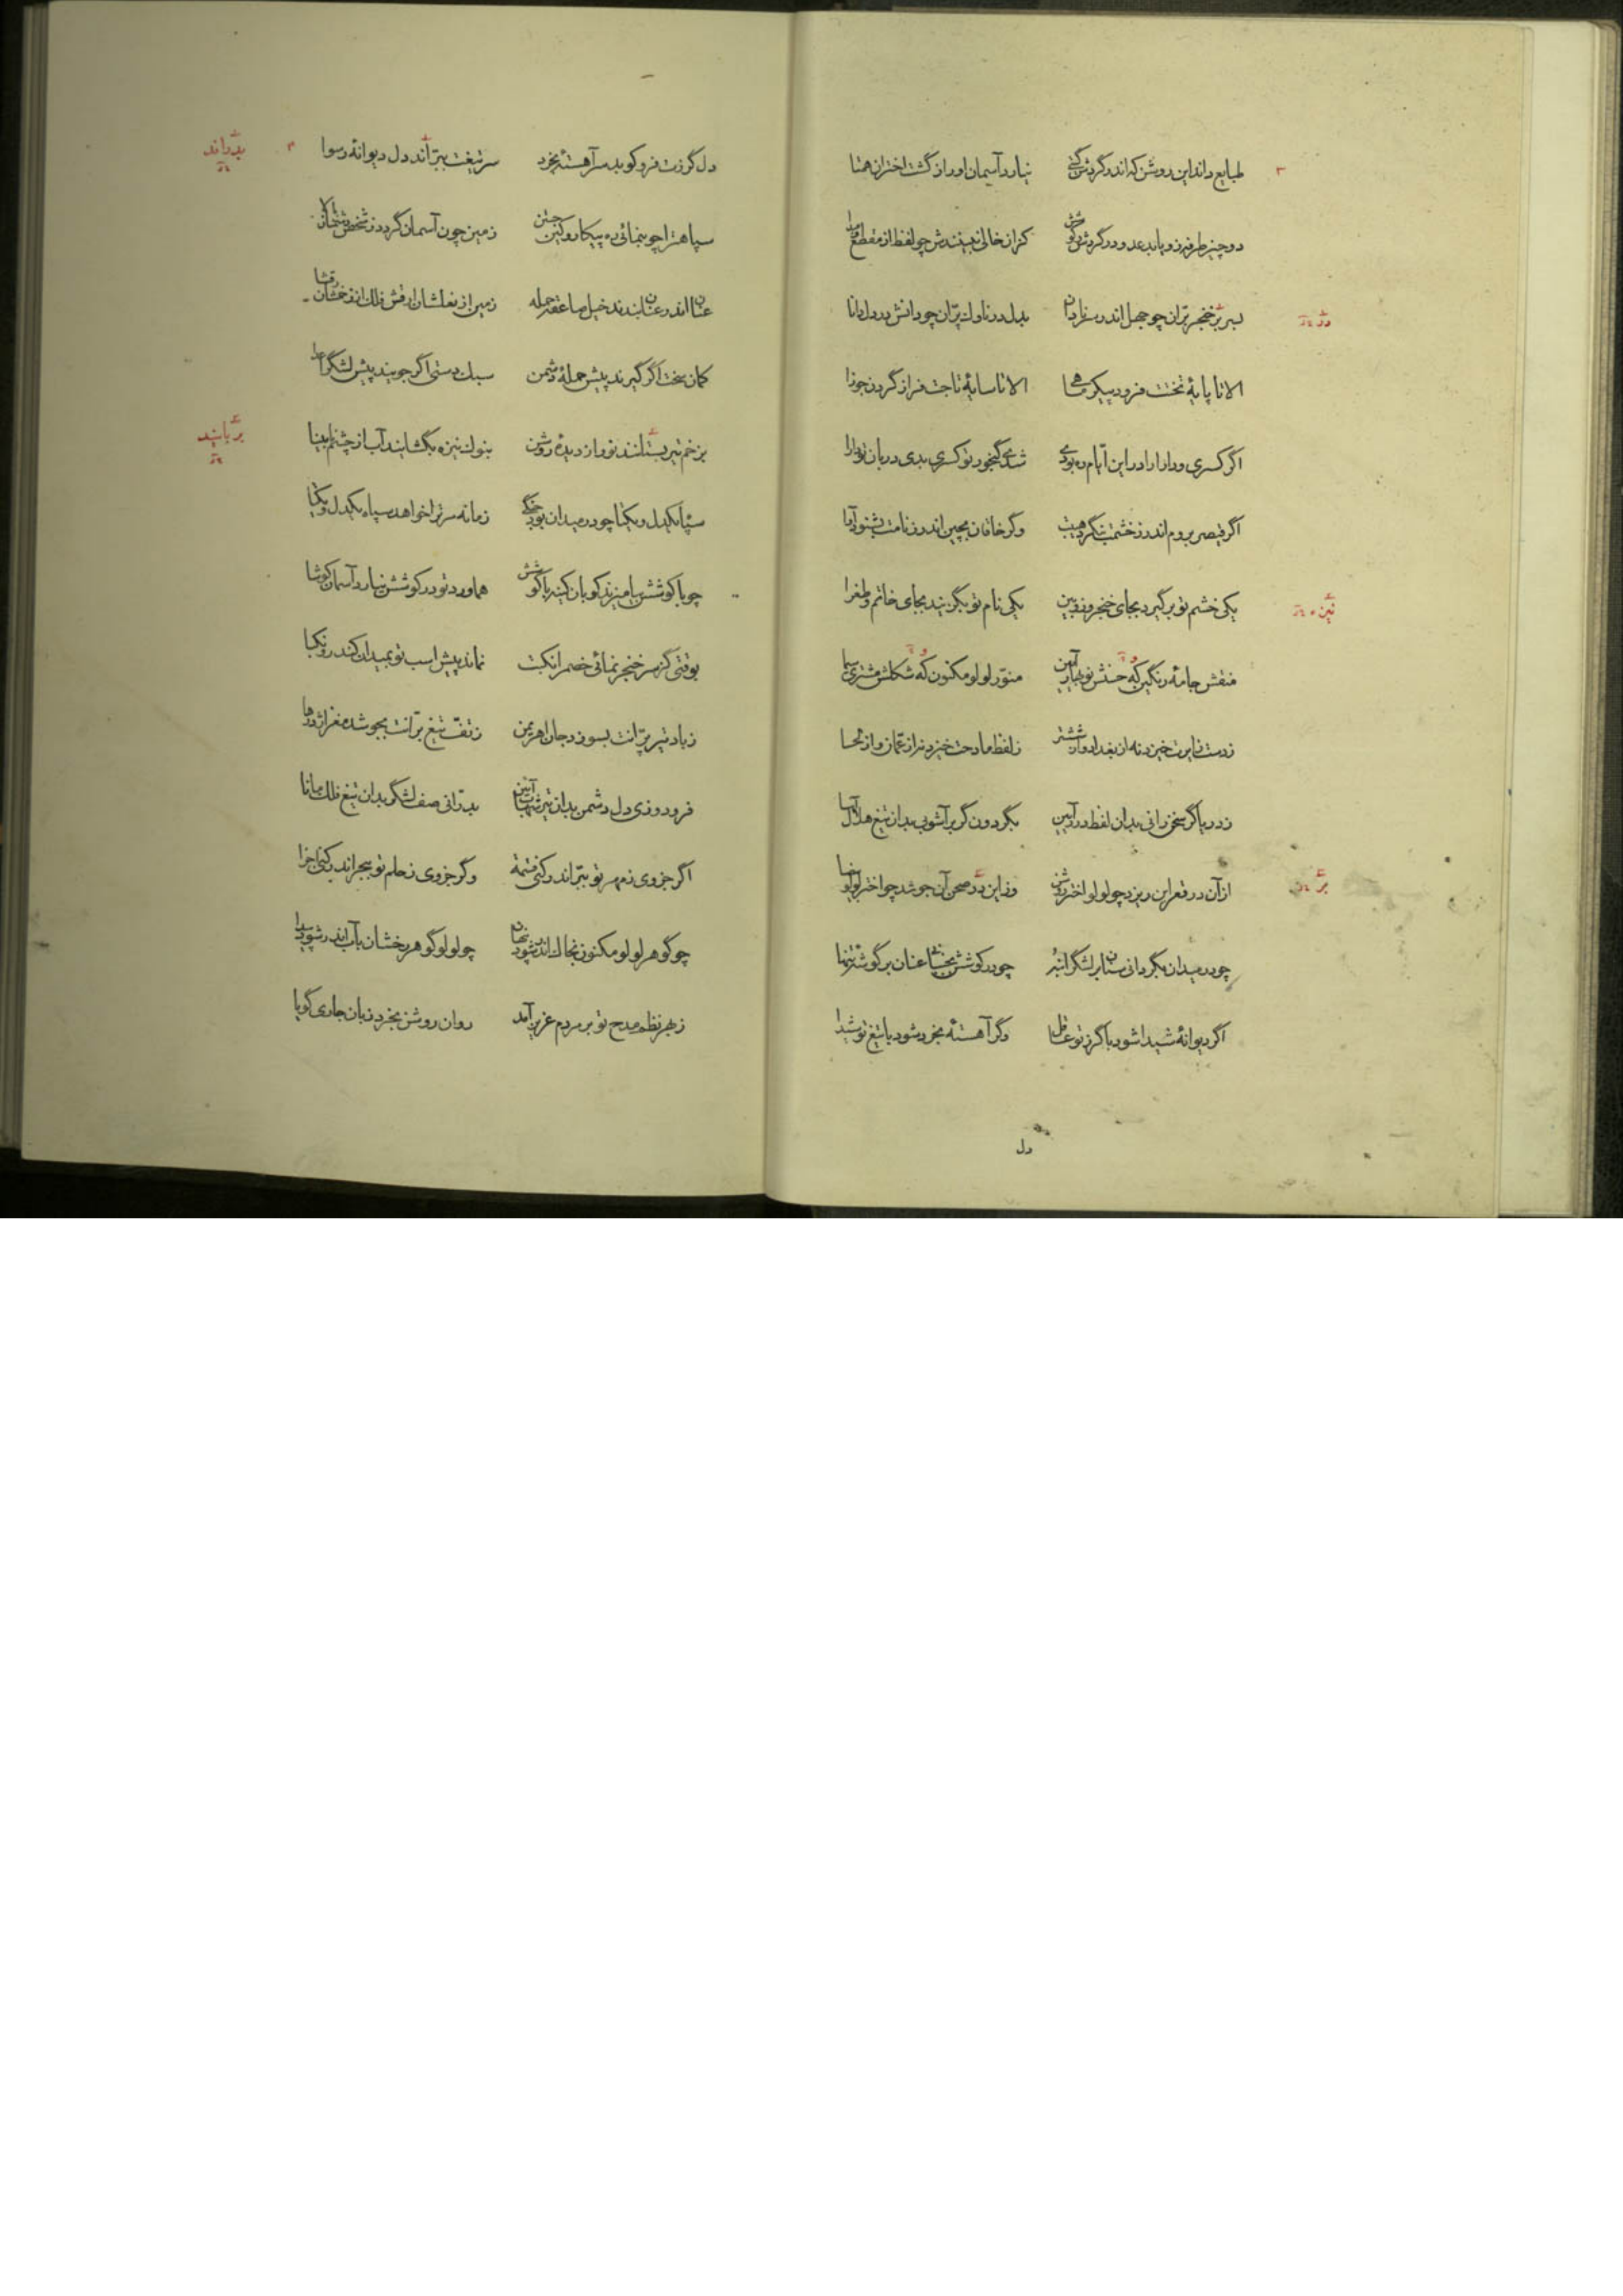 طبایع داند این روشن که اندر گردش گیتی نیارد آسیمان او را ز گشت اختران همتا
دو چیز طرفه زو یابد عدو در گردش کز آن خالی نبینندش چو لفظ از مقطع و مبدا
بسر بر خنجر برّان چو جهل اندر سر نادان بدل در ناوک پرّان چو دانش در دل دانا
الا تا پایهٔ تخت فرود پیکر ماهی الا تا سایهٔ تاجت فراز گردن جوزا
اگر کسری و دارا را در این ایّام ره بودی شدی گنجور تو کسری بدی دربان تو دارا
اگر قیصر بروم اندر ز خشمت بنگرد هیبت وگر خاقان بچین اندر ز نامت بشنود آوا
یکی خشم تو برگیرد بجای خنجر و زوبین یکی نام تو بگزیند بجای خاتم و طغرا
منقش جامهٔ رنگین که حسنش نوبهار آیین منوّر لولو مکنون که شکلش مشتری سیما
ز دست زایرت خیزد نه از بغداد و از ششتر ز لفظ مادحت خیزد نه از عمّان و از لحسا
ز دریا گر سخن رانی بدان لفظ در آیین بگردون گر برآشوبی بدان تیغ هلال آسا
از آن در قعر این ریزد چو لولو اختر روشن وز این در صحن آن جوشد چو اختر لولو بیضا
چو در میدان بگردانی سنان بر لشگر انبُه چو در کوشش بجنبانی عنان بر گوشهٔ تنها
اگر دیوانهٔ شیدا شود با گرز تو عاقل وگر آهستهٔ بخرد شود با تیغ تو شیدا
دل
نیزه
بر
دل گرزت فرو کوبد سر آهستهٔ بخرد سر تیغت ببرّاند دل دیوانهٔ رسوا
بدرّاند
سپاهت را چو بنمائی ره پیکار و کین جستن زمین چون آسمان گردد ز شخص دشمنان
عنان اندر عنان بندند خیل صاعقه حمله زمین از نعلشان ارقش فلک از رخششان رقشا
کمان سخت اگر گیرند پیش حملهٔ دشمن سبک دستی اگر جویند پیش لشگر اعدا
بزخم تیر بستانند نور از دیدهٔ روشن بنوک نیزه بگشایند آب از چشم بینا
بربایند
سپاه یکدل و یکتا چو در میدان بود جنگی زمانه سر ترا خواهد سپاه یکدل و یکتا
چو با کوشش بیامیزند کوبان کینه با کوشش هماورد تو در کوشش نیارد آسمان کوشا
بوقتی کز سر خنجر نمائی خصم را نکبت نماند پیش اسب تو بمیدان کندرو نکبا
ز باد تیر پرّانت بسوزد جان اهریمن ز تفّ تیغ برّانت بجوشد مغز اژدرها
فرو دوزی دل دشمن بدان تیر شهاب آیین بدرّانی صف لشگر بدان تیغ فلک مانا
اگر جزوی ز مهر تو ببرّ اندر کنی قسمة وگر جزوی ز حلم تو ببحر اندر کنی اجزا
چو گوهر لولو مکنون بخاک اندر شود پنهان چو لولو گوهر رخشان بآب اندر شود پیدا
ز بهر نظم مدح تو بر مردم عزیز آمد روان روشن بخرد زبان جاری گویا